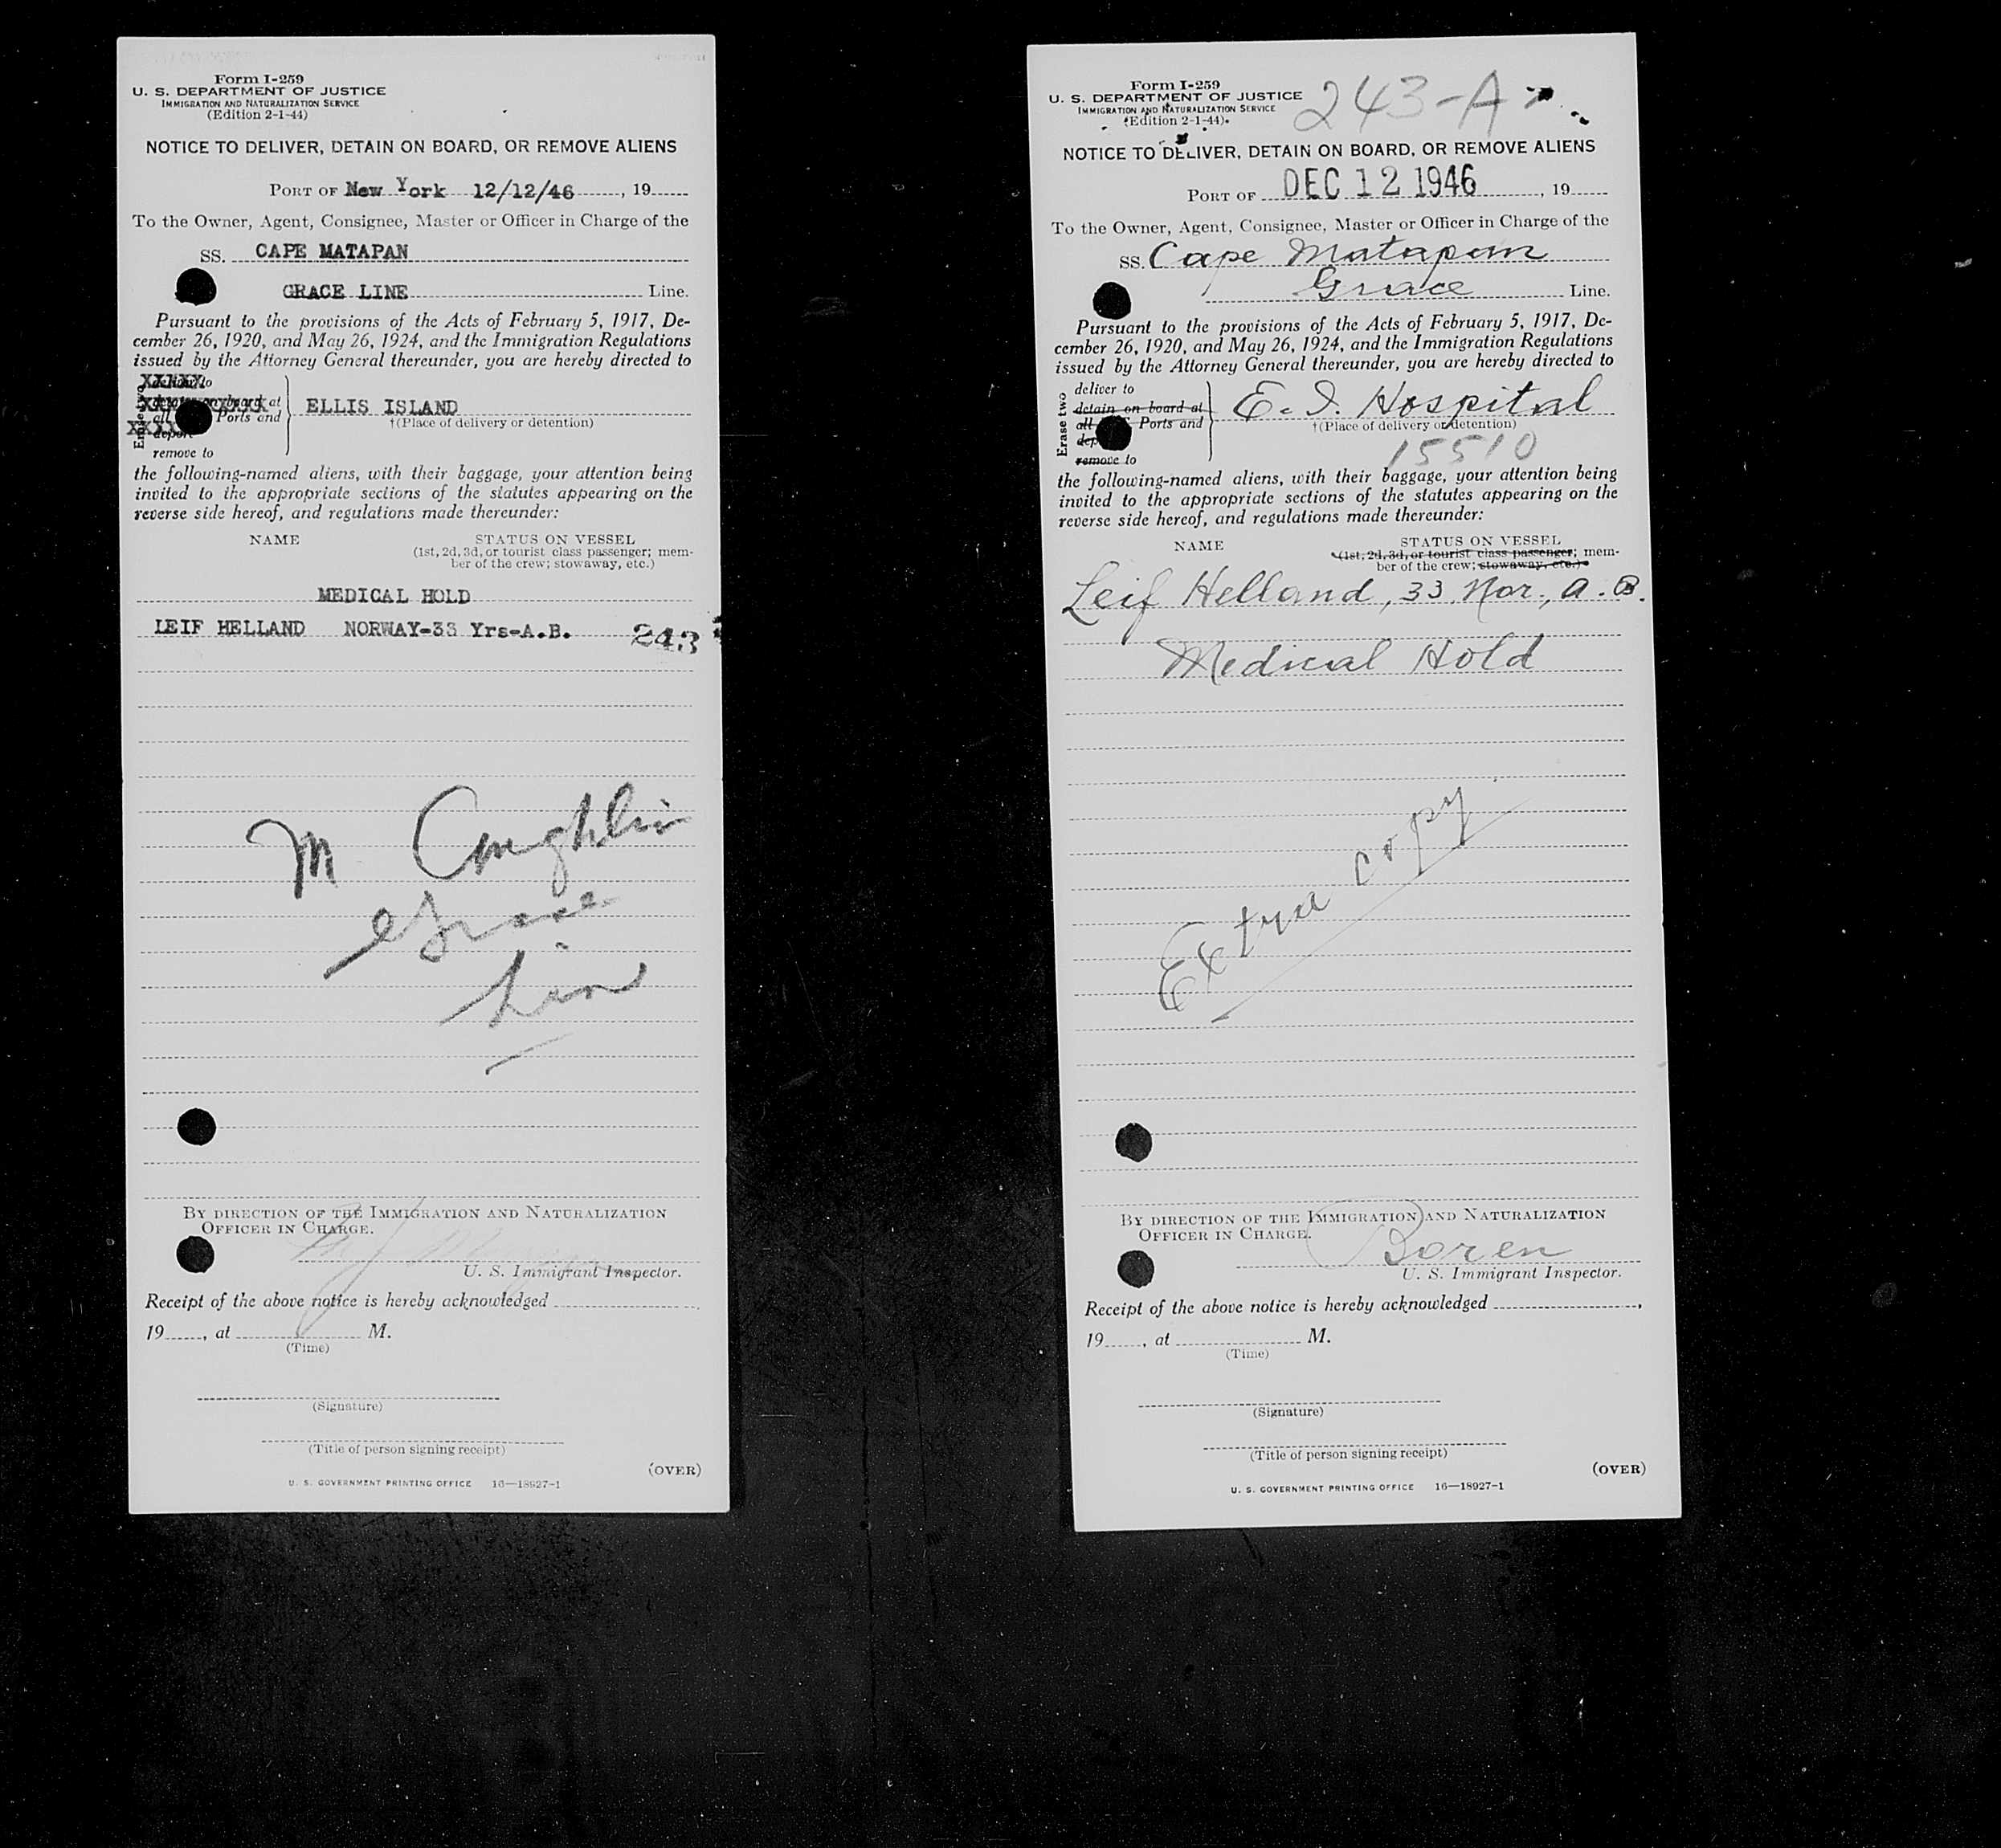 Form I-259
U. S. DEPARTMENT OF JUSTICE
IMMIGRATION AND NATURALIZATION SERVICE
(Edition 2-1-44)
NOTICE TO DELIVER, DETAIN ON BOARD, OR REMOVE ALIENS
PORT OF New York 12/12/46, 19
To the Owner, Agent, Consignee, Master or Officer in Charge of the
SS. CAPE MATAPAN
GRACE LINE Line.
Pursuant to the provisions of the Acts of February 5, 1917, De-
cember 26, 1920, and May 26, 1924, and the Immigration Regulations
issued by the Attorney General thereunder, you are hereby directed to
Erase two
deliver to
detain on board at
all Ports and
deport
remove to
ELLIS ISLAND
†(Place of delivery or detention)
the following-named aliens, with their baggage, your attention being
invited to the appropriate sections of the statutes appearing on the
reverse side hereof, and regulations made thereunder:
NAME STATUS ON VESSEL
(1st, 2d, 3d, or tourist class passenger; mem-
ber of the crew; stowaway, etc.)
MEDICAL HOLD
LEIF HELLAND NORWAY-33 Yrs-A.B. 243
M Coughlin
Grace
Line
BY DIRECTION OF THE IMMIGRATION AND NATURALIZATION
OFFICER IN CHARGE.
U. S. Immigrant Inspector.
Receipt of the above notice is hereby acknowledged
19, at M.
(Time)
(Signature)
(Title of person signing receipt)
(OVER)
U. S. GOVERNMENT PRINTING OFFICE 16—18927-1
Form I-259
U. S. DEPARTMENT OF JUSTICE
IMMIGRATION AND NATURALIZATION SERVICE
(Edition 2-1-44)
243-A
NOTICE TO DELIVER, DETAIN ON BOARD, OR REMOVE ALIENS
PORT OF DEC 12 1946, 19
To the Owner, Agent, Consignee, Master or Officer in Charge of the
SS. Cape Matapan
Grace Line.
Pursuant to the provisions of the Acts of February 5, 1917, De-
cember 26, 1920, and May 26, 1924, and the Immigration Regulations
issued by the Attorney General thereunder, you are hereby directed to
Erase two
deliver to
detain on board at
all Ports and
remove to
E. I. Hospital
†(Place of delivery or detention)
15510
the following-named aliens, with their baggage, your attention being
invited to the appropriate sections of the statutes appearing on the
reverse side hereof, and regulations made thereunder:
NAME STATUS ON VESSEL
(1st, 2d, 3d, or tourist class passenger; mem-
ber of the crew; stowaway, etc.)
Leif Helland, 33, Nor., A. B.
Medical Hold
Extra copy
BY DIRECTION OF THE IMMIGRATION AND NATURALIZATION
OFFICER IN CHARGE.
Boren
U. S. Immigrant Inspector.
Receipt of the above notice is hereby acknowledged,
19, at M.
(Time)
(Signature)
(Title of person signing receipt)
(OVER)
U. S. GOVERNMENT PRINTING OFFICE 16—18927-1